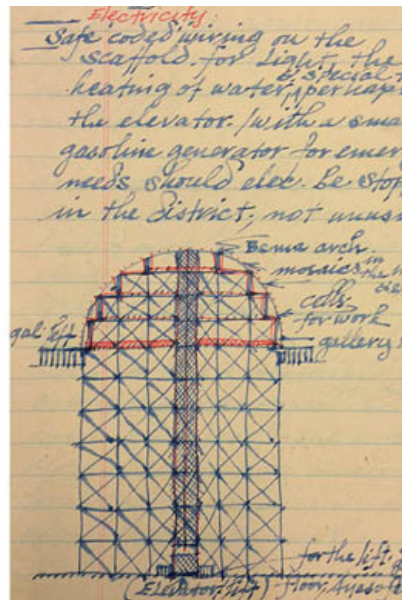 Electricity:
Safe coded wiring on the
scaffold for light, the
& special
heating of water, perhap
the elevator. /with a sma
gasoline generator for emer
needs should elec. be stop
in the district, not unus
Bema arch.
mosaics in
the
cells
for work
gal. left
gallery
for the lift.
(Elevator/lift) floor,